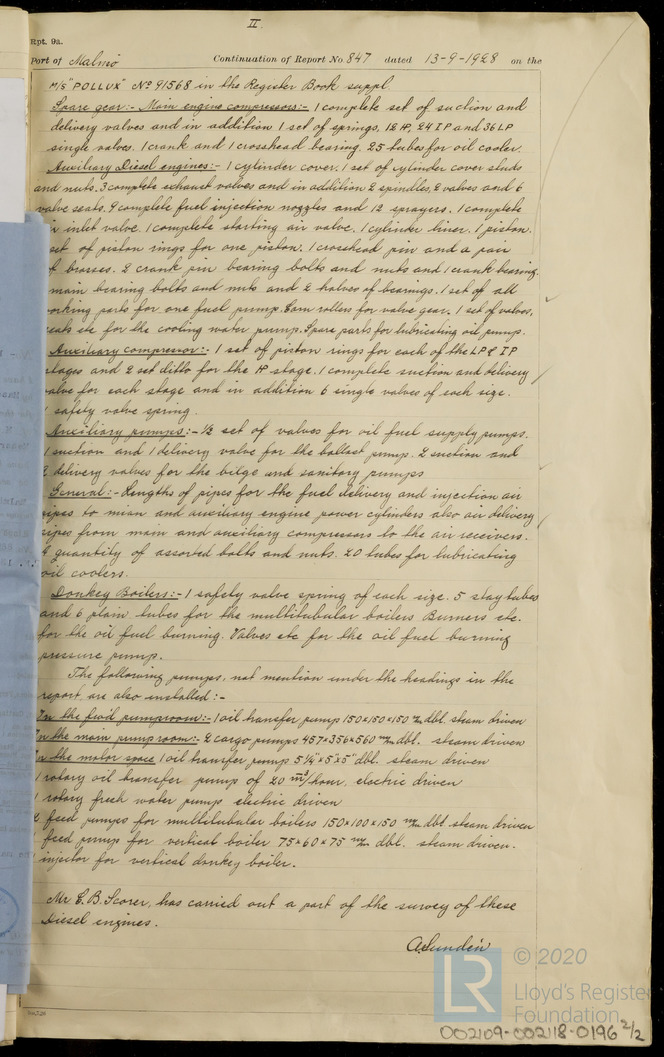 II.
Rpt. 9a.
Port of Malmö Continuation of Report No. 847 dated 13-9-1928 on the
M/S "POLLUX" No 91568 in the Register Book suppl.
Spare gear:- Main engine compressors:- 1 complete set of suction and
delivery valves and in addition 1 set of springs, 12 HP, 24 IP and 36 LP
single valves. 1 crank and 1 crosshead bearing. 25 tubes for oil cooler.
Auxiliary Diesel engines:- 1 cylinder cover. 1 set of cylinder cover studs
and nuts. 3 complete exhaust valves and in addition 2 spindles, 2 valves and 6
valve seats. 9 complete fuel injection nozzles and 12 sprayers. 1 complete
inlet valve. 1 complete starting air valve. 1 cylinder liner. 1 piston.
set of piston rings for one piston. 1 crosshead pin and a pair
of brasses. 2 crank pin bearing bolts and nuts and 1 crank bearing.
main bearing bolts and nuts and 2 halves of bearings. 1 set of all
working parts for one fuel pump. Cam rollers for valve gear. 1 set of valves,
seats etc for the cooling water pump. Spare parts for lubricating oil pump.
Auxiliary compressor:- 1 set of piston rings for each of the LP & IP
stages and 2 set ditto for the HP stage. 1 complete suction and delivery
valve for each stage and in addition 6 single valves of each size.
1 safety valve spring.
Auxiliary pumps:- 1/2 set of valves for oil fuel supply pumps.
1 suction and 1 delivery valve for the ballast pump. 2 suction and
2 delivery valves for the bilge and sanitary pumps
General:- Lengths of pipes for the fuel delivery and injection air
pipes to mian and auxiliary engine power cylinders also air delivery
pipes from main and auxiliary compressors to the air receivers.
A quantity of assorted bolts and nuts. 20 tubes for lubricating
oil coolers.
Donkey Boilers:- 1 safety valve spring of each size. 5 stay tubes
and 6 plain tubes for the multitubular boilers Burners etc.
for the oil fuel burning. Valves etc for the oil fuel burning
pressure pump.
The following pumps, not mention under the headings in the
report are also installed:-
In the fwd pumproom:- 1 oil transfer pump 150×150×150 m/m dbl. steam driven
In the main pumproom:- 2 cargo pumps 457×356×560 m/m dbl. steam driven
In the motor space 1 oil transfer pump 5 1/4"×5×5" dbl. steam driven
1 rotary oil transfer pump of 20 m³/hour, electric driven
1 rotary fresh water pump electric driven
2 feed pumps for multitubular boilers 150×100×150 m/m dbl steam driven
feed pump for vertical boiler 75×60×75 m/m dbl. steam driven.
injector for vertical donkey boiler.
Mr C. B. Scorer, has carried out a part of the survey of these
Diesel engines.
A. Lundén
LR © 2020
Lloyd's Register
Foundation
002109-002118-0196 2/2